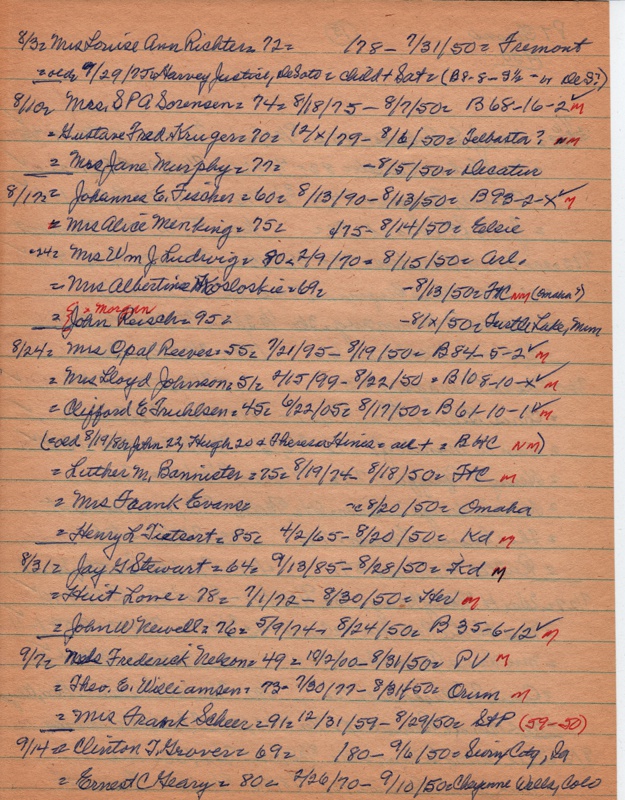 8/3= Mrs Louise Ann Richter= 72= /78 - 7/31/50= Fremont
=old 9/29/75= Harvey Justice, DeSoto= child + Sat= (B8-8-9½ - in DeS?)
8/10= Mrs. S P A Sorensen= 74= 8/18/75 - 8/7/50= B68-16-2 ✓ M
= Gustave Fred. Kruger= 70= 12/x/79 - 8/6/50= Telbasta? NM
= Mrs Jane Murphy= 77= - 8/5/50= Decatur
8/17= Johannes E. Fischer= 60= 8/13/90 - 8/13/50= B93-2-X ✓ M
= Mrs Alice Menking= 75= /75 - 8/14/50= Elsie
-24= Mrs Wm J Ludwig= 80= 2/9/70= 8/15/50= Arl.
= Mrs Albertine Kosloskie= 69= - 8/13/50= FtC NM (Omaha?)
G. Morgan
= John Reisch= 95= - 8/x/50= Turtle Lake, Minn
8/24= Mrs Opal Reeves= 55= 7/21/95 - 8/19/50= B84-5-2 ✓ M
= Mrs Lloyd Johnson= 51= 2/15/99 - 8/22/50= B108-10-X ✓ M
= Clifford E Fruhlsen= 45= 6/22/05= 8/17/50= B61-10-1 ✓ M
(=old 8/19/80= John 22, Hugh 20 & Theresa Hines= all + = B4C NM)
= Luther M, Bannister= 75= 8/19/74 - 8/18/50= FtC M
= Mrs Frank Evans= 8/20/50= Omaha
= Henry L Tietsort= 85= 4/2/65 - 8/20/50= Kd M
8/31= Jay G Stewart= 64= 9/13/85 - 8/28/50= Kd M
= Huit Lone= 78= 7/1/72 - 8/30/50= Her M
= John W Newell= 76= 5/9/74 - 8/24/50= B 35-6-12 ✓ M
9/7= Frederick Nelson= 49= 10/2/00 - 8/31/50= PV M
= Theo. E. Williamsen= 73- 7/30/77 - 8/31/50= Orum M
= Mrs Frank Scheer= 91= 12/31/59 - 8/29/50= StP (59-50)
9/14= Clinton T, Grover= 69= /80 - 9/6/50= Cdg, Ia
= Ernest C Geary= 80= 2/26/70 - 9/10/50= Cheyenne Wells, Colo